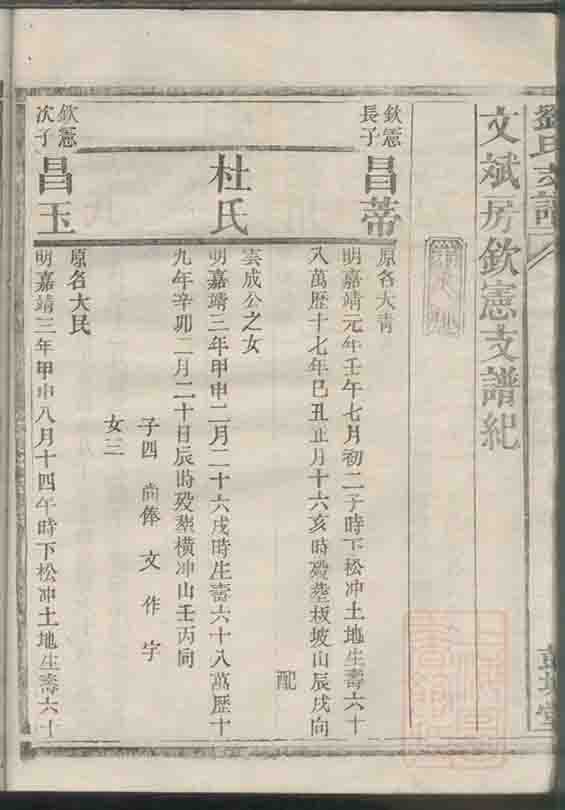 劉氏支譜
文斌房欽憲支譜紀
欽憲
長子
昌蒂
原名大青
明嘉靖元年壬午七月初二子時下松冲土地生壽六十
八萬歷十七年巳丑正月十六亥時歿葬板坡山辰戌向
配
杜氏
雲成公之女
明嘉靖三年甲申二月二十六戌時生壽六十八萬歷十
九年辛卯二月二十日辰時歿葬橫冲山壬丙向
子四 尚俸文作字
女三
欽憲
次子
昌玉
原名大民
明嘉靖三年甲申八月十四午時下松冲土地生壽六十